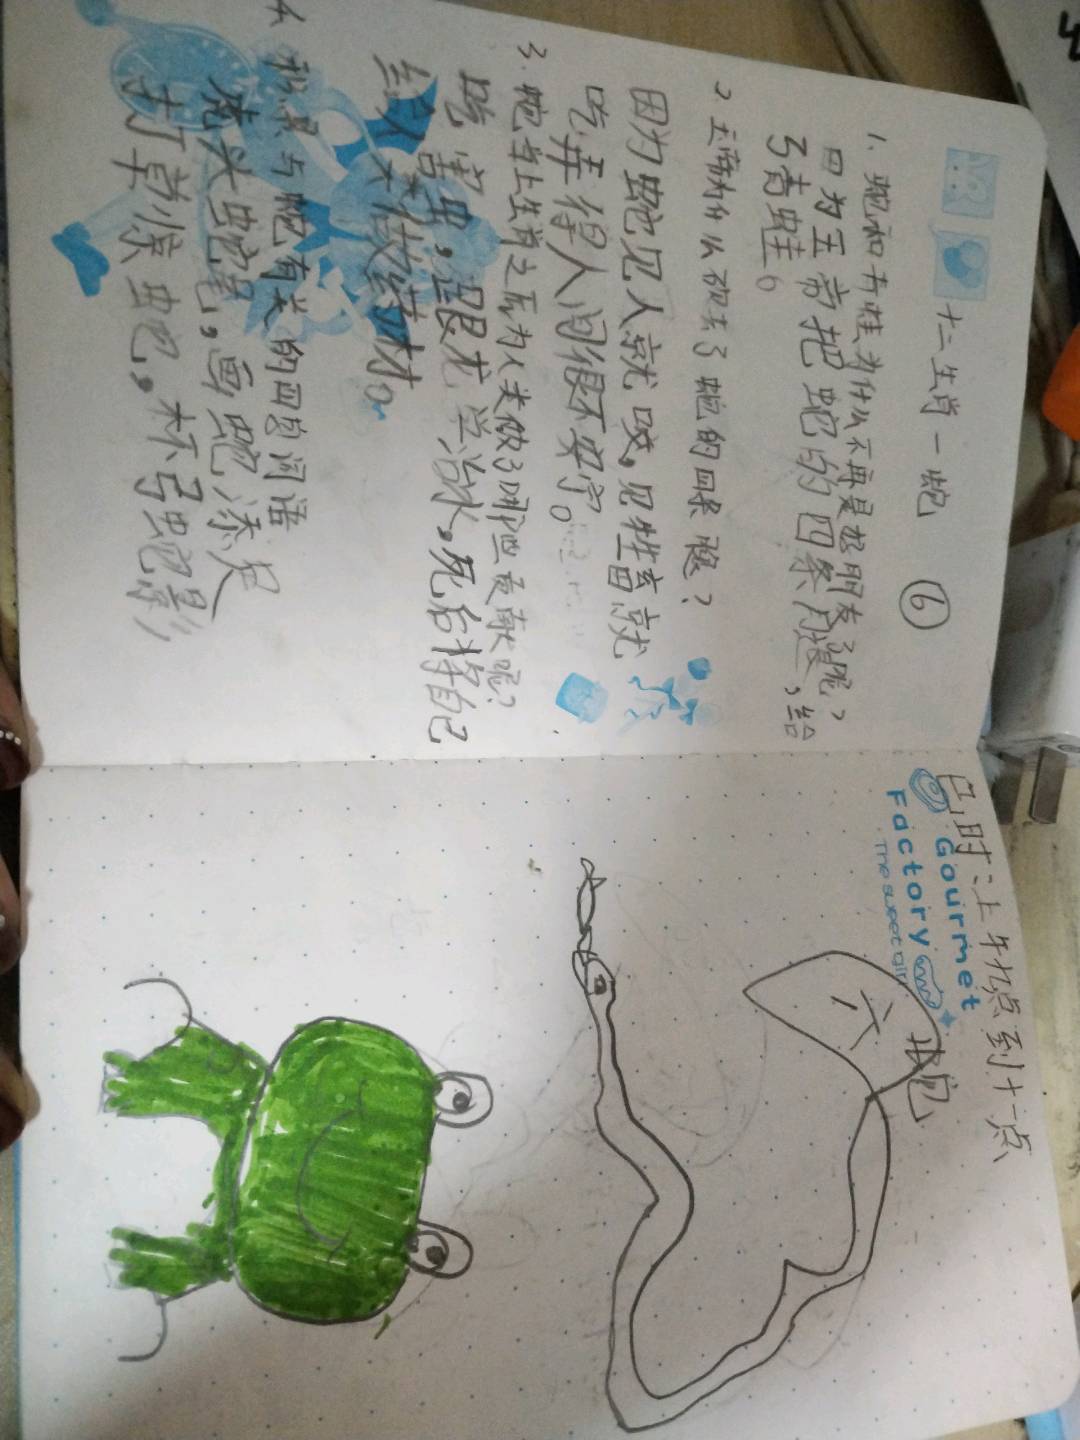 十二生肖—蛇 ⑥
1. 蛇和青蛙为什么不再是好朋友了呢?
因为玉帝把蛇的四条腿,给
了青蛙。
2. 玉帝为什么砍去了蛇的四条腿?
因为蛇见人就咬,见牲畜就
吃弄得人间很不安宁。
3. 蛇当上生肖之后为人类做了哪些贡献呢?
吃害虫,跟龙学治水,死后将自己
给人类做药材。
4. 积累与蛇有关的四字词语
虎头蛇尾,画蛇添足
打草惊蛇,杯弓蛇影
巳时:上午九点到十一点
Gourmet
Factory
The sweet girl
六 蛇